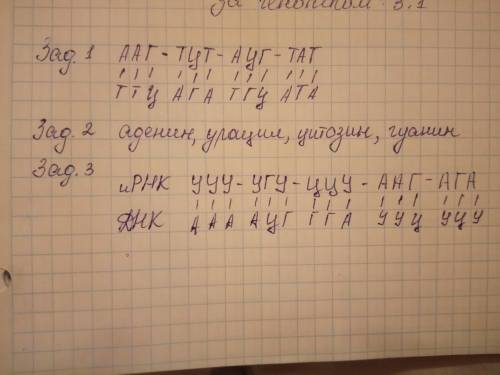 за генотипом 3:1
Зад. 1 ААГ - ТЦТ - АЦГ - ТАТ
ТТЦ АГА ТГЦ АТА
Зад. 2 аденин, урацил, цитозин, гуанин
Зад. 3
иРНК УУУ - УГУ - ЦЦУ - ААГ - АГА
ДНК ААА АЦГ ГГА УУЦ УЦУ